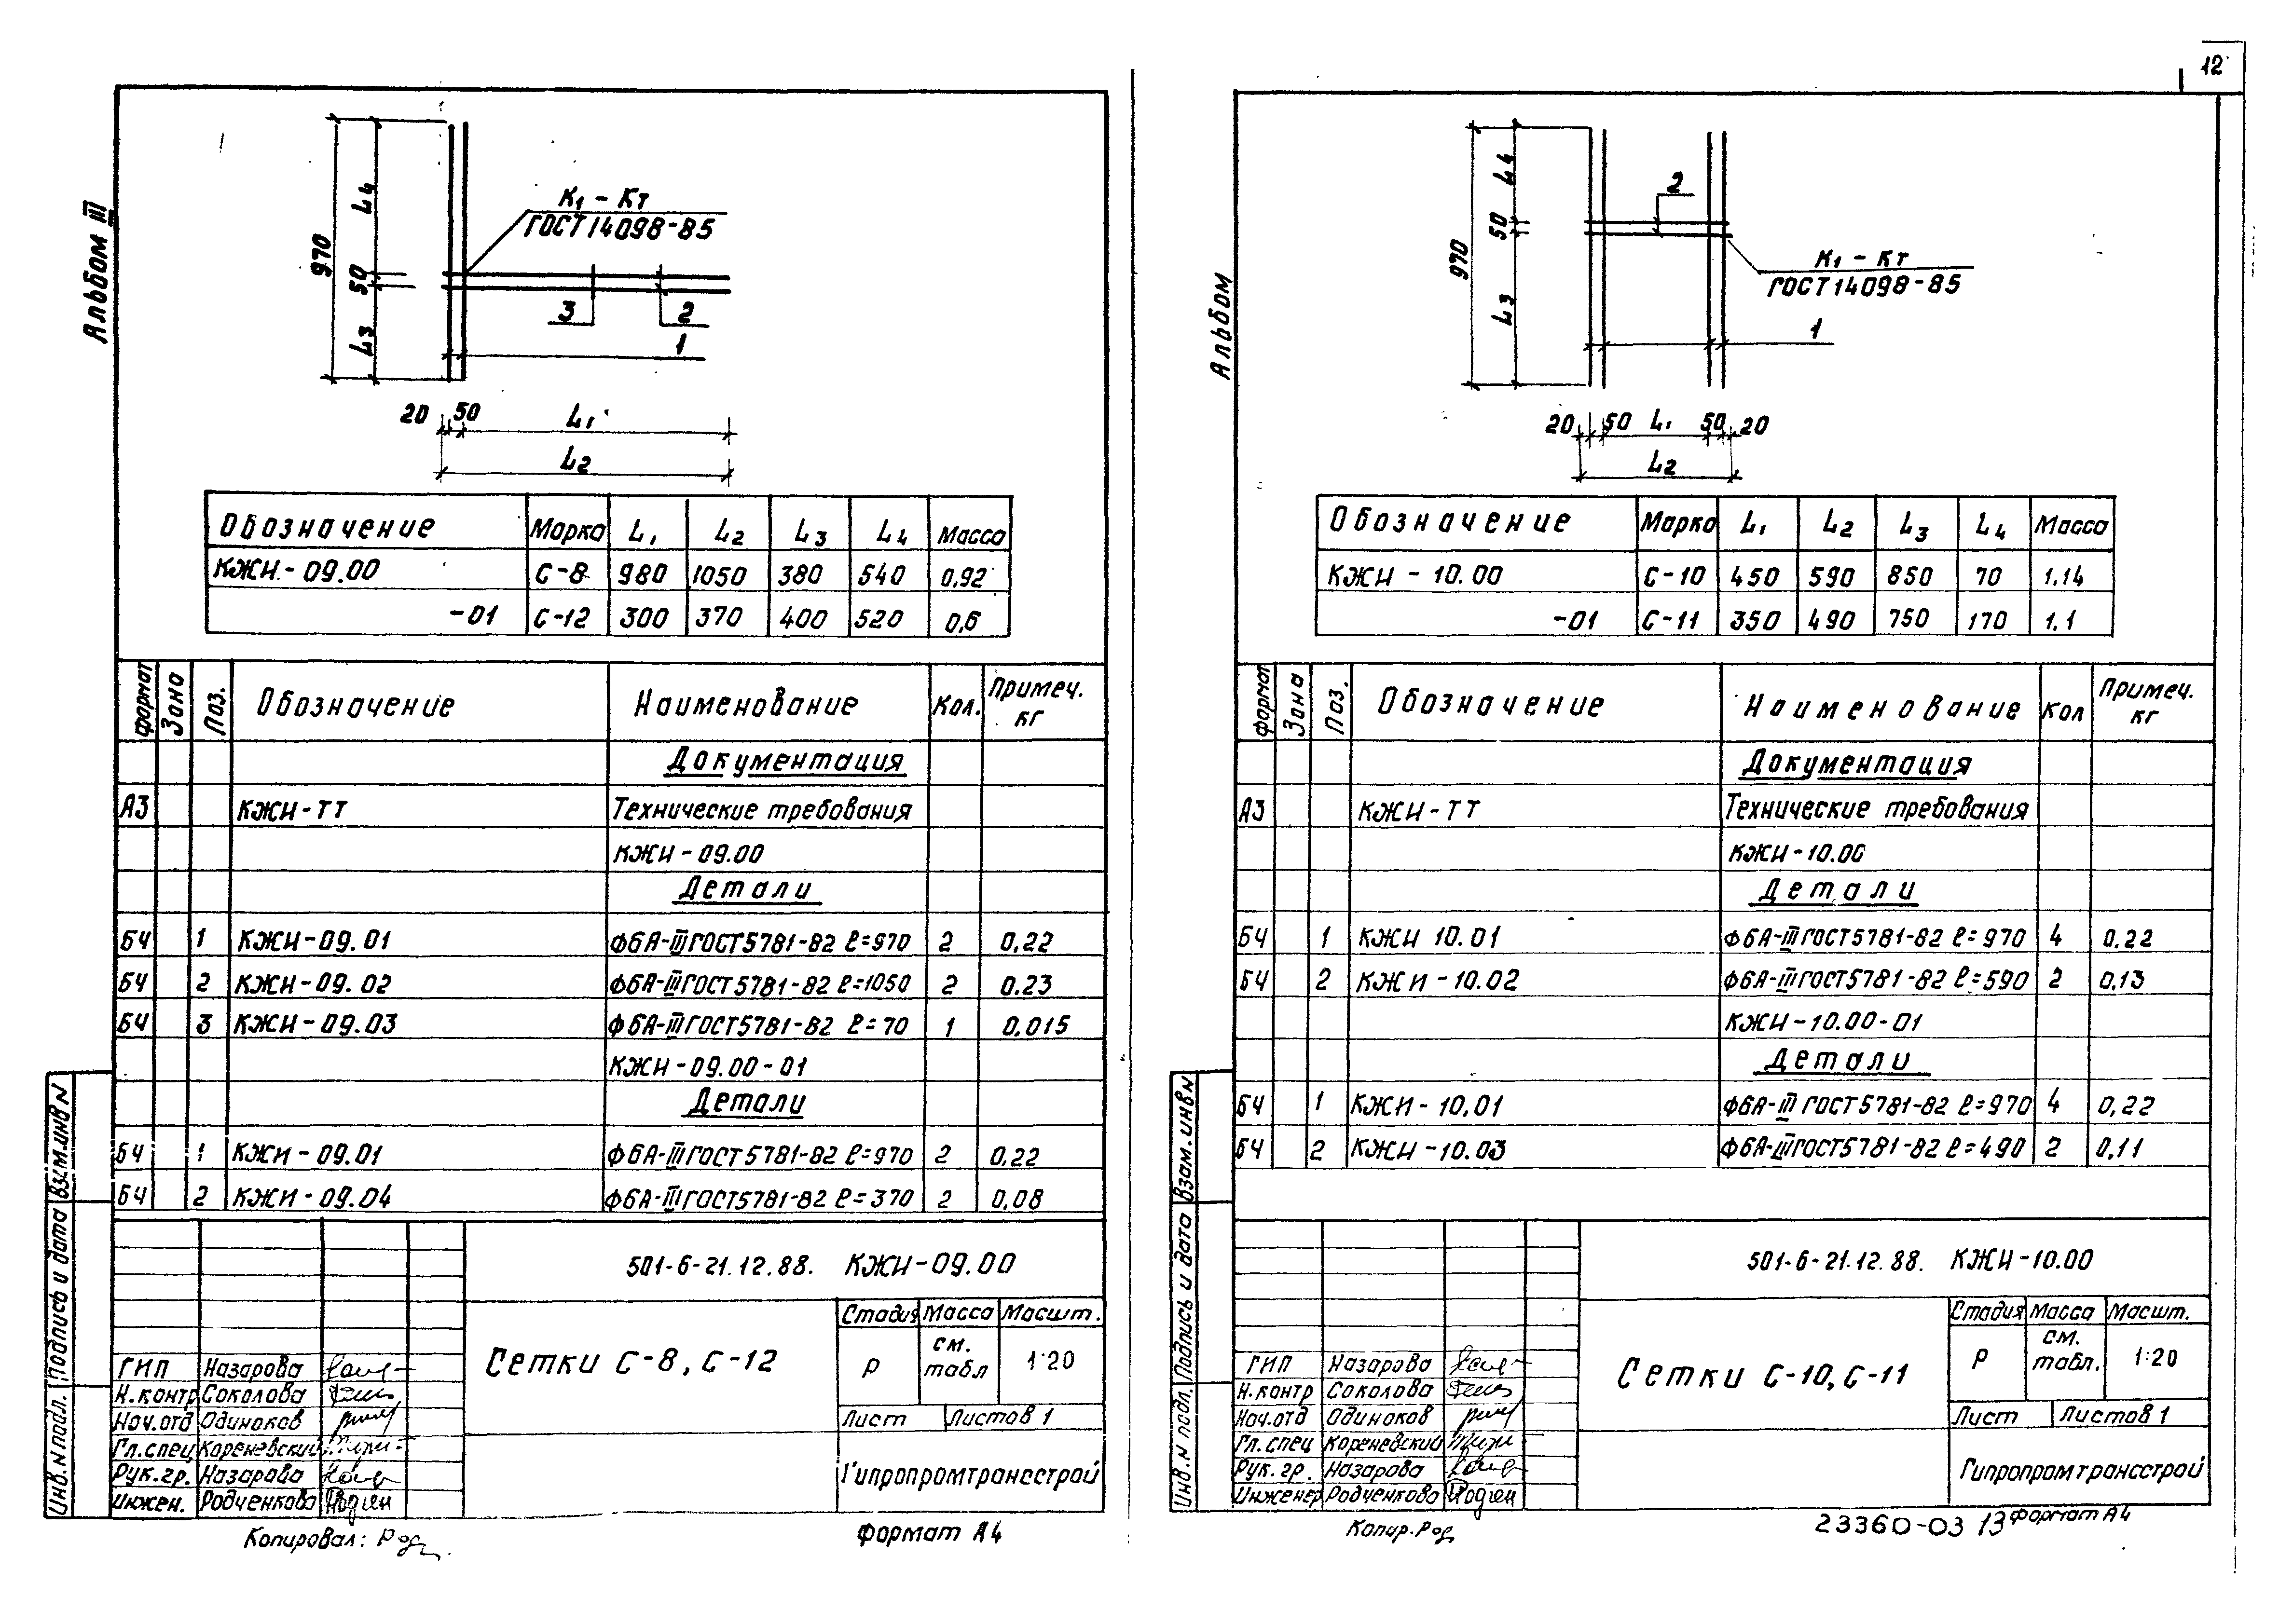 12
Альбом III
970
L4
50
L3
К1 - Кт
ГОСТ 14098-85
3
2
1
20 50 L1
L2
Обозначение Марка L1 L2 L3 L4 Масса
КЖИ - 09.00 С-8 980 1050 380 540 0,92
-01 С-12 300 370 400 520 0,6
формат Зона Поз. Обозначение Наименование Кол. Примеч. кг
Документация
А3 КЖИ-ТТ Технические требования
КЖИ - 09.00
Детали
БЧ 1 КЖИ-09.01 Ф6А-III ГОСТ5781-82 ℓ=970 2 0,22
БЧ 2 КЖИ-09.02 Ф6А-III ГОСТ5781-82 ℓ=1050 2 0.23
БЧ 3 КЖИ-09.03 Ф6А-III ГОСТ5781-82 ℓ=70 1 0,015
КЖИ-09.00-01
Детали
БЧ 1 КЖИ-09.01 Ф6А-III ГОСТ5781-82 ℓ=970 2 0,22
БЧ 2 КЖИ-09.04 Ф6А-III ГОСТ5781-82 ℓ=370 2 0,08
Взам.инв N
Подпись и дата
Инв. N подл.
501-6-21.12.88. КЖИ-09.00
Сетки С-8, С-12
Стадия Масса Масшт.
Р см. табл 1:20
Лист Листов 1
Гипропромтрансстрой
ГИП Назарова
Н.контр Соколова
Нач.отд Одиноков
Гл.спец Кореневский
Рук.гр. Назарова
Инжен. Родченкова
Копировал: Род
формат А4
Альбом
970
L4
50
L3
2
К1 - Кт
ГОСТ 14098-85
1
20 50 L1 50 20
L2
Обозначение Марка L1 L2 L3 L4 Масса
КЖИ - 10.00 С-10 450 590 850 70 1.14
-01 С-11 350 490 750 170 1.1
формат Зона Поз. Обозначение Наименование Кол Примеч. кг
Документация
А3 КЖИ-ТТ Технические требования
КЖИ-10.00
Детали
БЧ 1 КЖИ 10.01 Ф6А-III ГОСТ5781-82 ℓ=970 4 0.22
БЧ 2 КЖИ-10.02 Ф6А-III ГОСТ5781-82 ℓ=590 2 0,13
КЖИ-10.00-01
Детали
БЧ 1 КЖИ-10,01 Ф6А-III ГОСТ5781-82 ℓ=970 4 0,22
БЧ 2 КЖИ-10.03 Ф6А-III ГОСТ5781-82 ℓ=490 2 0,11
Взам.инв N
Подпись и дата
Инв. N подл.
501-6-21.12.88. КЖИ-10.00
Сетки С-10, С-11
Стадия Масса Масшт.
Р см. табл. 1:20
Лист Листов 1
Гипропромтрансстрой
ГИП Назарова
Н.контр Соколова
Нач.отд Одиноков
Гл.спец Кореневский
Рук.гр. Назарова
Инженер Родченкова
Копир. Род
23360-03 13 формат А4